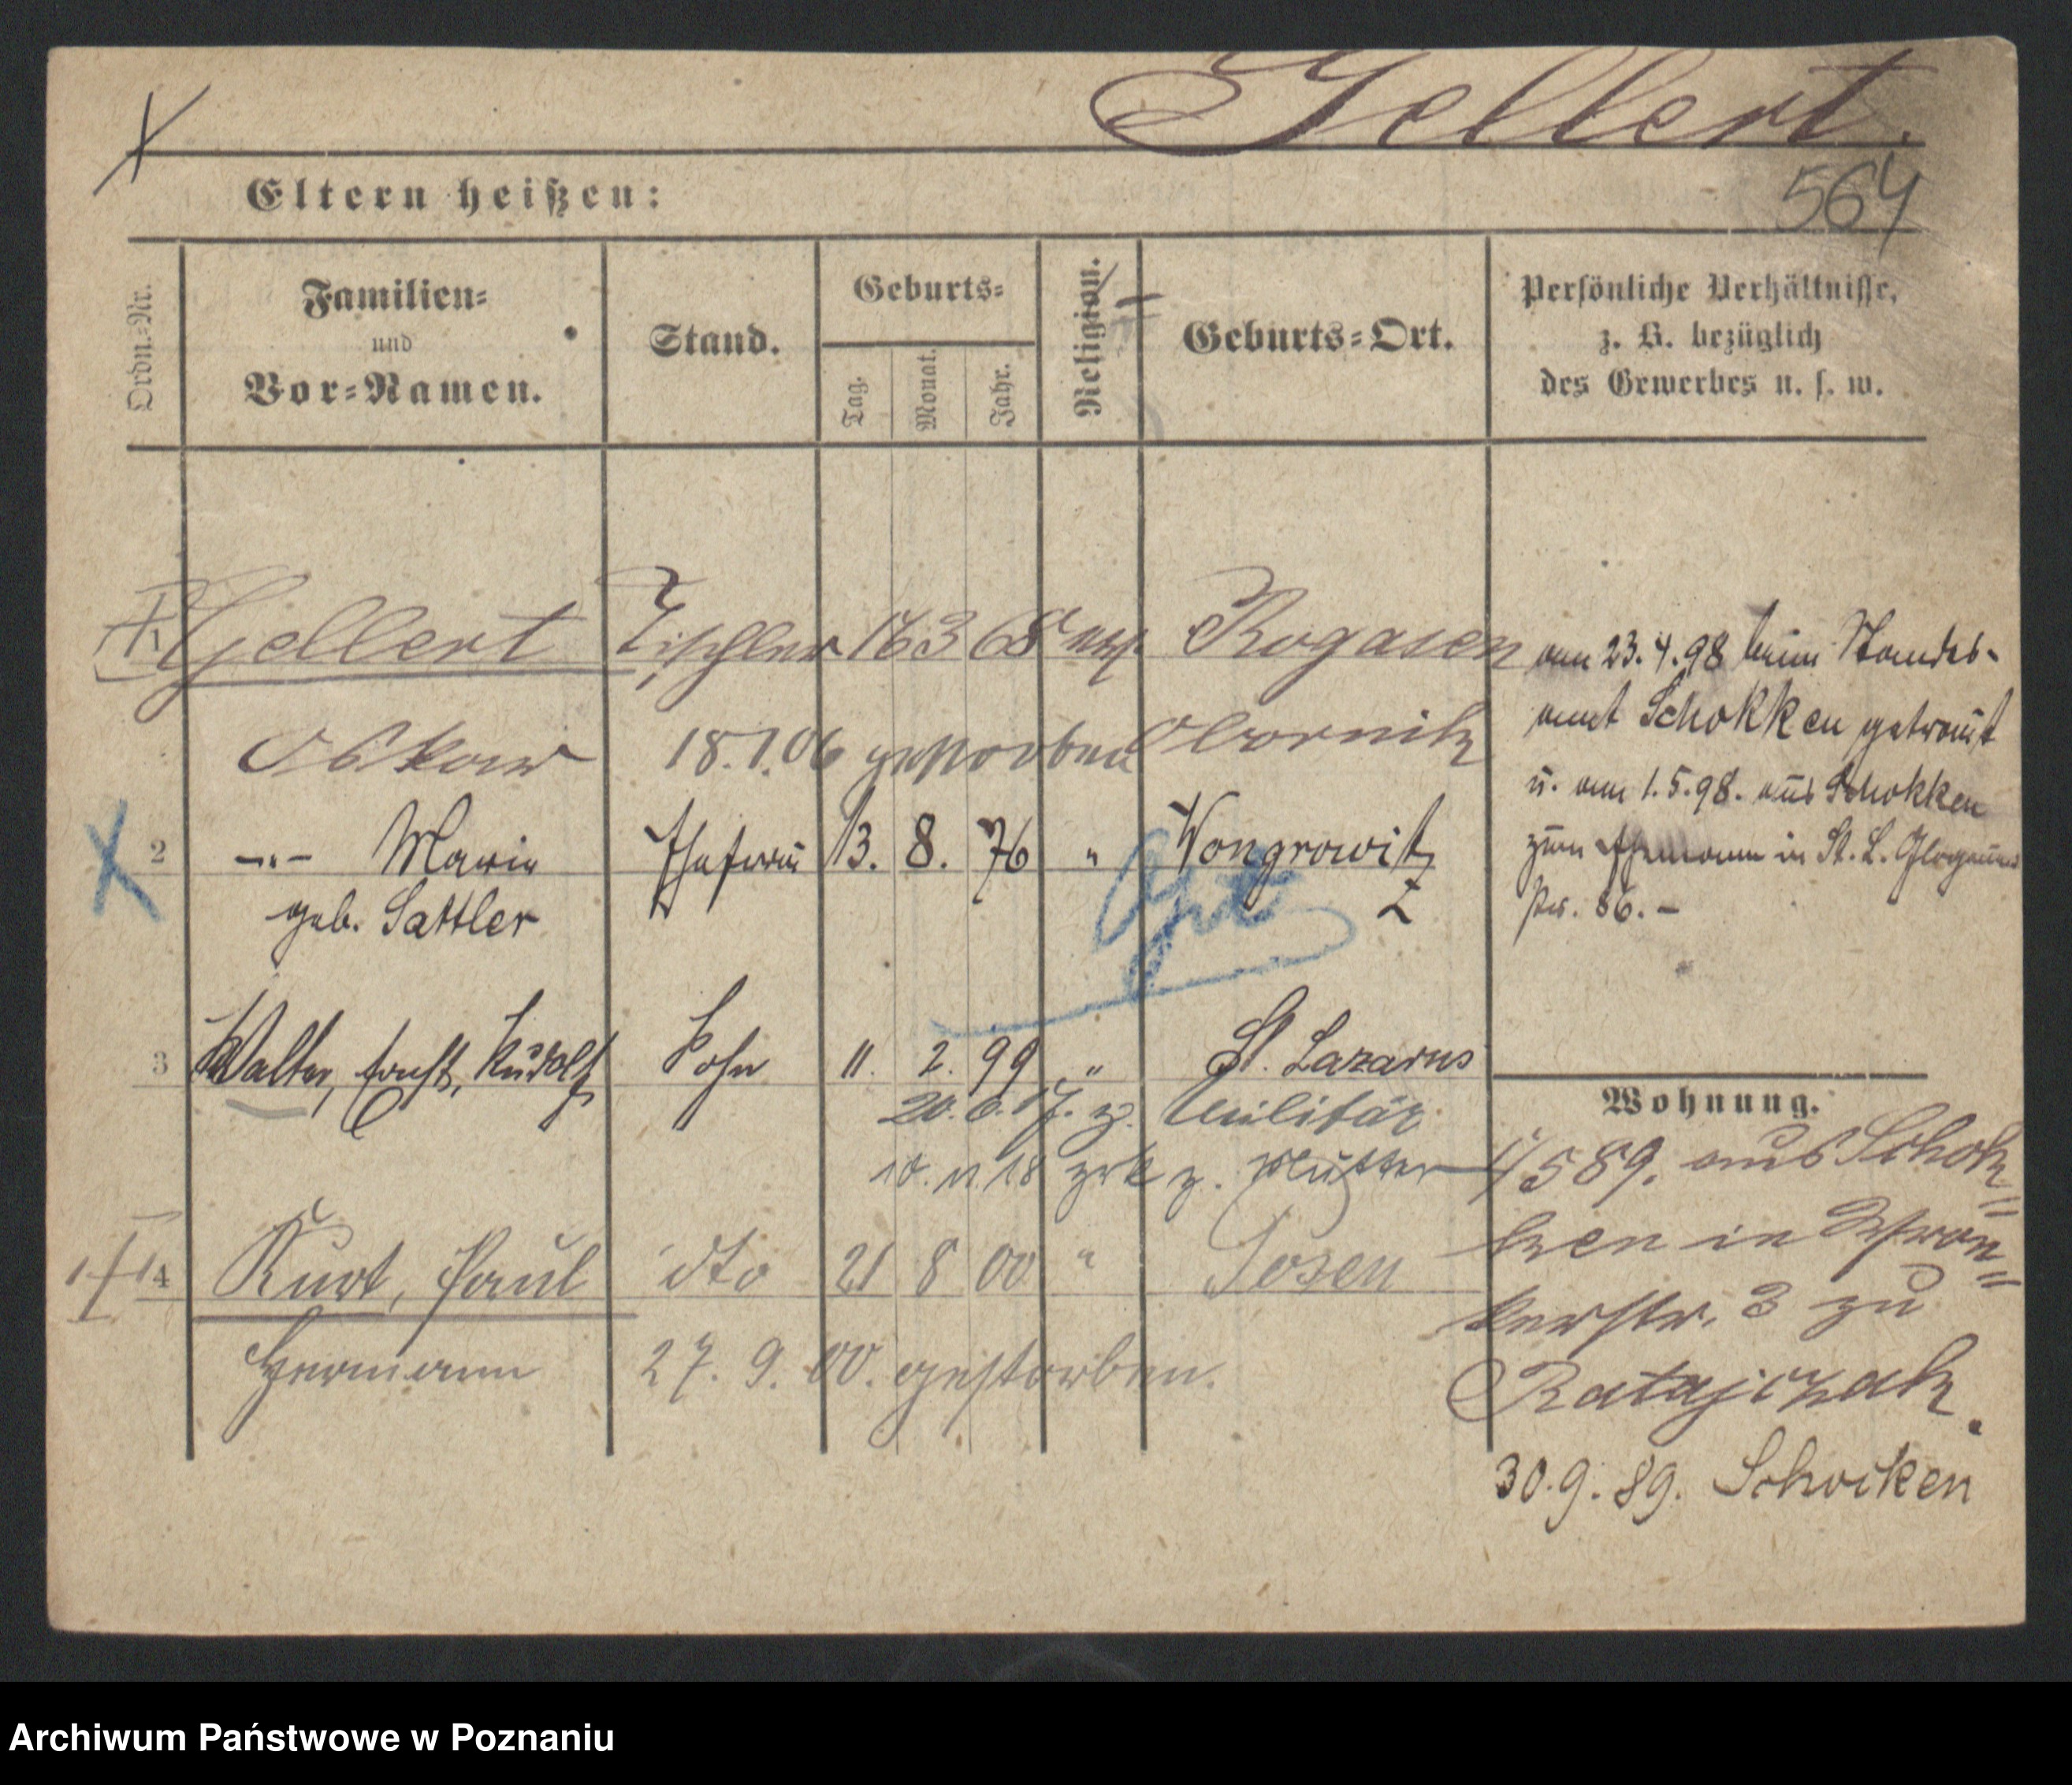 Gellert.
564
Eltern heißen:
Ordn.-Nr.
Familien-
und
Vor-Namen.
Stand.
Geburts-
Tag.
Monat.
Jahr.
Religion.
Geburts-Ort.
Persönliche Verhältnisse,
z. B. bezüglich
des Gewerbes u. s. w.
1 Gellert Tischler 16 3 68 ev. Rogasen
Oskar 18.1.06 gestorben Obornik
2 -"- Marie Ehefrau 13. 8. 76 " Wongrowitz
geb. Sattler
3 Walter, Ernst, Rudolf Sohn 11. 2. 99 " St. Lazarus
20.6.17. z. Militär
10.11.18 zrk z. Mutter
4 Kurt, Paul dto 21 8 00 " Posen
Hermann 27. 9. 00. gestorben.
am 23.4.98 beim Standes-
amt Schokken getraut
u. am 1.5.98. aus Schokken
zum Ehemann in St. L. Glogauer
Str. 86.-
Wohnung.
1/5 89. aus Schok=
ken in Wron=
kerstr. 3 zu
Ratajczak.
30.9.89. Schocken
Archiwum Państwowe w Poznaniu